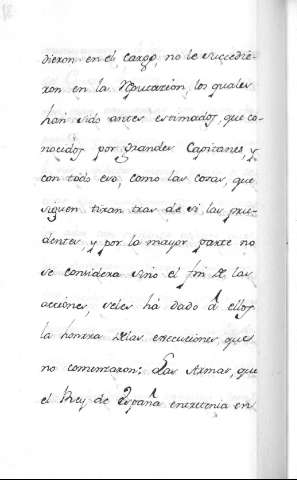 dieron en el cargo, no le succedie-
ron en la Reputación, los quales
han sido antes estimados, que co-
nocidos por grandes Capitanes, y
con todo eso, como las cosas, que
siguen tiran tras de si las pru-
dentes, y por la mayor parte no
se considera sino el fin de las
acciones, seles há dado á ellos
la honrra delas execuciones, que
no comenzaron: Las Armas, que
el Rey de España entretenia en